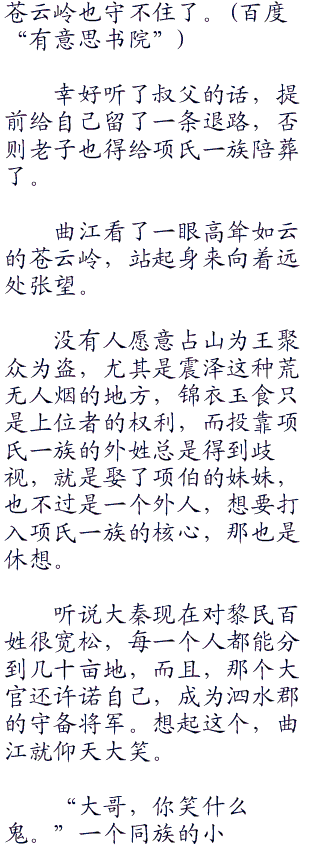 苍云岭也守不住了。(百度
“有意思书院”)
幸好听了叔父的话，提
前给自己留了一条退路，否
则老子也得给项氏一族陪葬
了。
曲江看了一眼高耸如云
的苍云岭，站起身来向着远
处张望。
没有人愿意占山为王聚
众为盗，尤其是震泽这种荒
无人烟的地方，锦衣玉食只
是上位者的权利，而投靠项
氏一族的外姓总是得到歧
视，就是娶了项伯的妹妹，
也不过是一个外人，想要打
入项氏一族的核心，那也是
休想。
听说大秦现在对黎民百
姓很宽松，每一个人都能分
到几十亩地，而且，那个大
官还许诺自己，成为泗水郡
的守备将军。想起这个，曲
江就仰天大笑。
“大哥，你笑什么
鬼。”一个同族的小